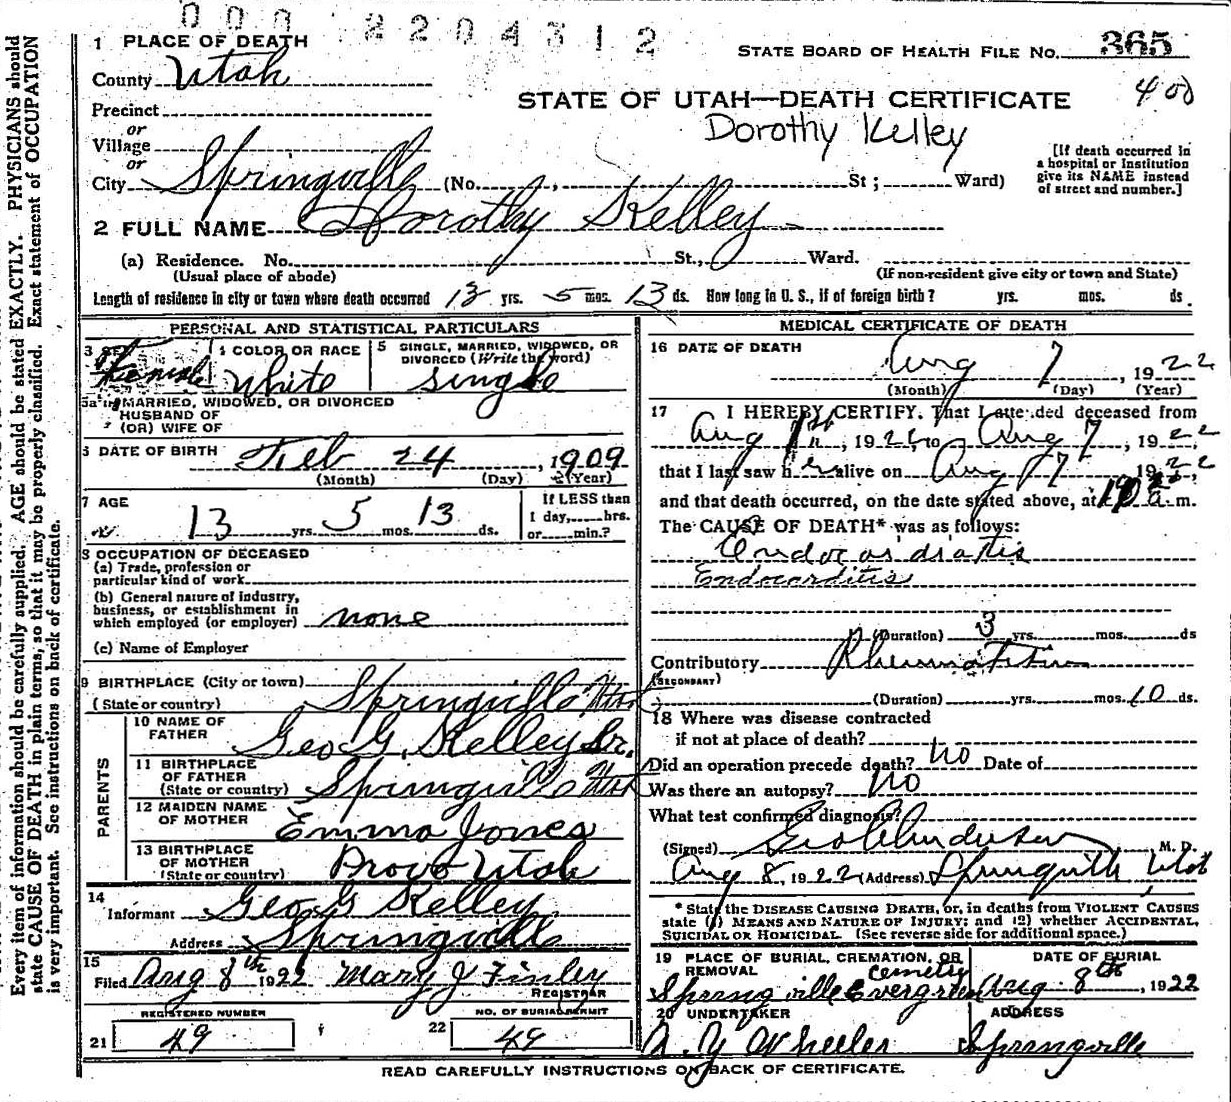 000 2204312
1 PLACE OF DEATH
STATE BOARD OF HEALTH FILE NO. 365
County Utah
400
STATE OF UTAH—DEATH CERTIFICATE
Dorothy Kelley
Precinct
or
Village
or
City Springville (No. , St ; Ward)
[If death occurred in a hospital or institution give its NAME instead of street and number.]
2 FULL NAME Dorothy Kelley
(a) Residence. No. St., Ward.
(Usual place of abode) (If non-resident give city or town and State)
Length of residence in city or town where death occurred 13 yrs. 5 mos. 13 ds. How long in U. S., if of foreign birth? yrs. mos. ds.
PERSONAL AND STATISTICAL PARTICULARS
3 SEX Female
4 COLOR OR RACE White
5 SINGLE, MARRIED, WIDOWED, OR DIVORCED (Write the word) single
5a If MARRIED, WIDOWED, OR DIVORCED
HUSBAND OF
(OR) WIFE OF
6 DATE OF BIRTH Feb 24, 1909
(Month) (Day) (Year)
7 AGE 13 yrs. 5 mos. 13 ds.
If LESS than
1 day, hrs.
or min.?
8 OCCUPATION OF DECEASED
(a) Trade, profession or
particular kind of work
(b) General nature of industry,
business, or establishment in
which employed (or employer) none
(c) Name of Employer
9 BIRTHPLACE (City or town) Springville Utah
(State or country)
PARENTS
10 NAME OF FATHER Geo G. Kelley Sr.
11 BIRTHPLACE OF FATHER (State or country) Springville Utah
12 MAIDEN NAME OF MOTHER Emma Jones
13 BIRTHPLACE OF MOTHER (State or country) Provo Utah
14
Informant Geo G Kelley
Address Springville
15
Filed Aug 8th 1922 Mary J Finley
REGISTRAR
REGISTERED NUMBER
21 49
NO. OF BURIAL PERMIT
22 49
MEDICAL CERTIFICATE OF DEATH
16 DATE OF DEATH Aug 7, 1922
(Month) (Day) (Year)
17 I HEREBY CERTIFY, That I attended deceased from
Aug 1st, 1922, to Aug 7, 1922
that I last saw her alive on Aug 7, 1922,
and that death occurred, on the date stated above, at a.m.
The CAUSE OF DEATH* was as follows:
Endocardatis
Endocarditis
(Duration) 3 yrs. mos. ds
Contributory Rheumatism
(SECONDARY)
(Duration) yrs. mos. 10 ds.
18 Where was disease contracted
if not at place of death?
Did an operation precede death? No Date of
Was there an autopsy? No
What test confirmed diagnosis?
(Signed) Geo Anderson M. D.
Aug 8, 1922 (Address) Springville Utah
* State the DISEASE CAUSING DEATH, or, in deaths from VIOLENT CAUSES
state (1) MEANS AND NATURE OF INJURY; and (2) whether ACCIDENTAL,
SUICIDAL OR HOMICIDAL. (See reverse side for additional space.)
19 PLACE OF BURIAL, CREMATION, OR REMOVAL
Springville Evergreen cemetry
DATE OF BURIAL
Aug. 8th, 1922
20 UNDERTAKER
A. Y Wheeler
ADDRESS
Springville
READ CAREFULLY INSTRUCTIONS ON BACK OF CERTIFICATE.
Every item of information should be carefully supplied. AGE should be stated EXACTLY. PHYSICIANS should
state CAUSE OF DEATH in plain terms, so that it may be properly classified. Exact statement of OCCUPATION
is very important. See instructions on back of certificate.